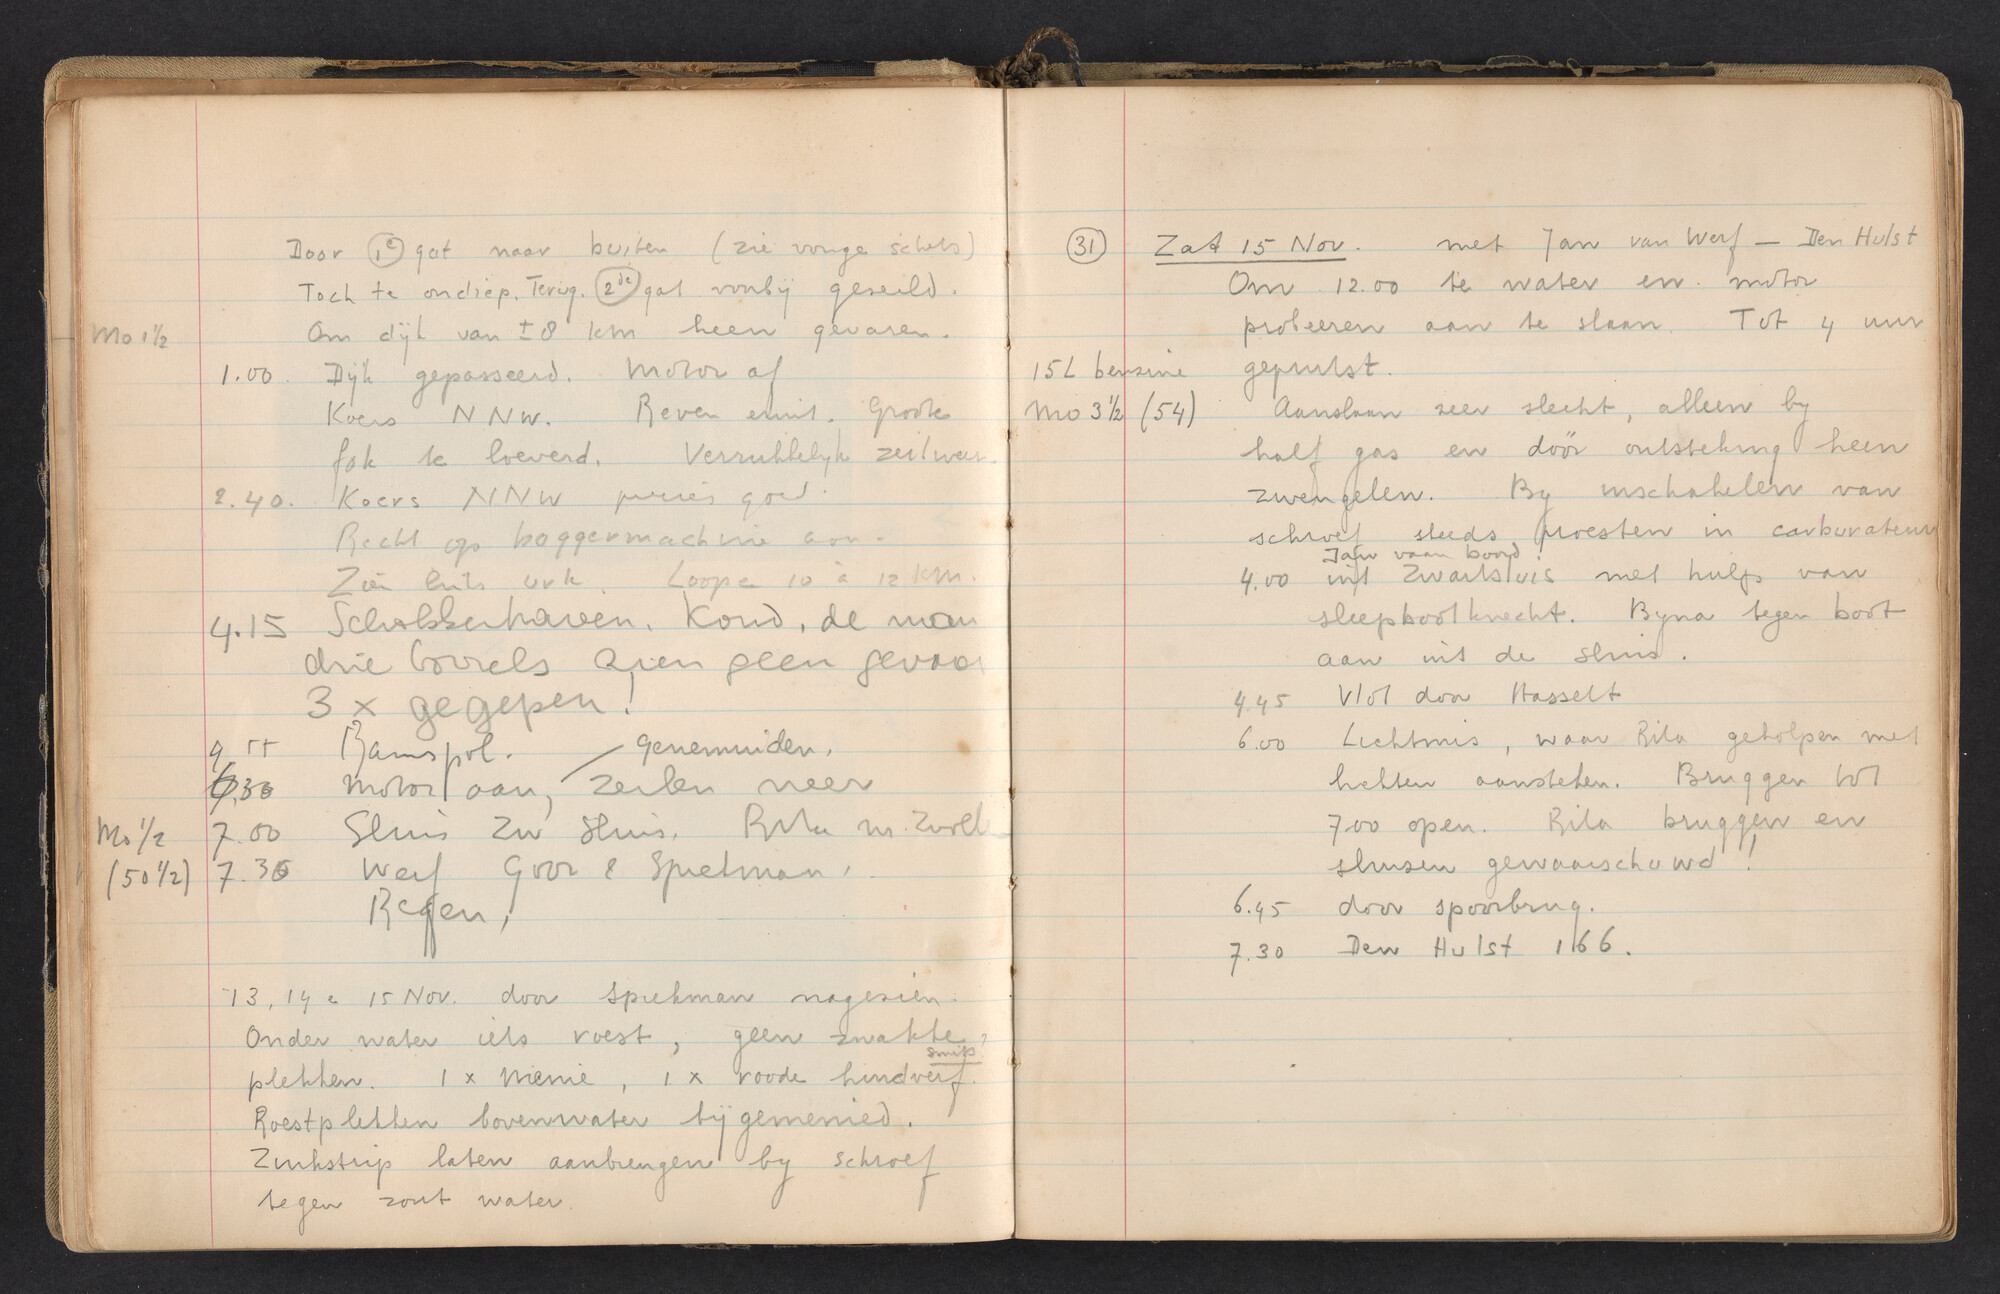 Door 1e gat naar buiten (zie vorige schets)
Toch te ondiep. Terug. 2de gat voorbij geseild.
Mo 1½ Om dijk van ± 8 km heen gevaren.
1.00 Dijk gepasseerd. Motor af
Koers NNW. Reven eruit. Groote
fok te loeverd. Verrukkelijk zeilweer.
2.40. Koers NNW precies goed.
Recht op baggermachine aan.
Zien links Urk. Loopen 10 à 12 km.
4.15 Schokkerhaven. Koud, de man
drie borrels zien geen gevaar
3 x gegepen!
Ramspol. Genemuiden.
6.30 Motor aan, zeilen neer
Mo ½ 7.00 Sluis Zw sluis. Rita n. Zwolle
(50½) 7.30 Werf Goor & Spielman.
Regen,
13, 14 e 15 Nov. door Spielman nagezien.
Onder water iets roest, geen zwakke
plekken. 1 x menie, 1 x roode hindverf.
Roestplekken bovenwater bijgemenied.
Zinkstrip laten aanbrengen by schroef
tegen zout water.
(31) Zat 15 Nov. met Jan van Werf — Den Hulst
Om 12.00 te water en motor
probeeren aan te slaan. Tot 4 uur
15 L benzine geprutst.
Mo 3½ (54) Aanslaan zeer slecht, alleen by
half gas en dóór ontsteking heen
zwengelen. By inschakelen van
schroef steeds proesten in carburateur
Jan vaan boord
4.00 uit Zwartsluis met hulp van
sleepbootknecht. Byna tegen boot
aan uit de sluis.
4.45 Vlot door Hasselt
6.00 Lichtmis, waar Rita geholpen met
lichten aansteken. Bruggen tot
7.00 open. Rita bruggen en
sluisen gewaarschuwd!
6.45 door spoorbrug.
7.30 Den Hulst 166.